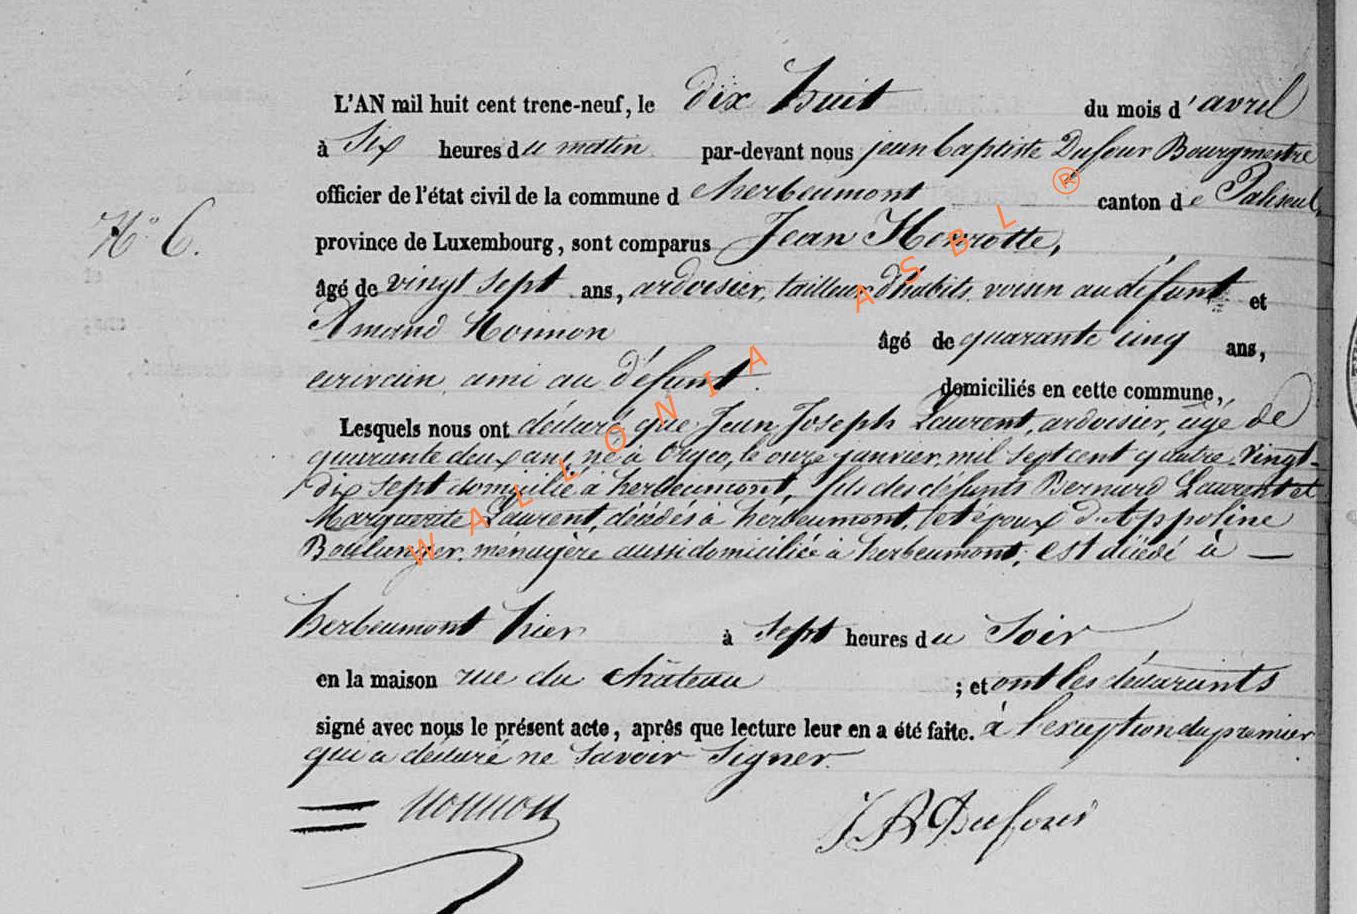 L'AN mil huit cent trene-neuf, le dix huit du mois d'avril
à Six heures du matin par-devant nous jean baptiste Dufour Bourgmestre
officier de l'état civil de la commune d'herbeumont canton de Paliseul,
N° 6.
province de Luxembourg, sont comparus Jean Henrotte,
âgé de vingt sept ans, ardoisier, tailleur d'habits, voisin au défunt et
Amand Monnon âgé de quarante cinq ans,
écrivain ami au défunt. domiciliés en cette commune,
Lesquels nous ont déclaré que Jean Joseph Laurent, ardoisier, âgé de
quarante deux ans, né à Orgeo, le onze janvier, mil sept cent quatre Vingt-
dix sept domicilié à herbeumont, fils des défunts Bernard Laurent et
Marguerite Laurent, décédés à herbeumont, et époux d'Appoline
Boulanger, ménagère aussi domiciliée à herbeumont, est décédé à —
herbeumont hier à Sept heures du Soir
en la maison rue du château ; et ont les déclarants
signé avec nous le présent acte, après que lecture leur en a été faite. à l'exception du premier
qui a déclaré ne Savoir Signer.
Monnon J B Dufour
WALLONIA ASBL ®